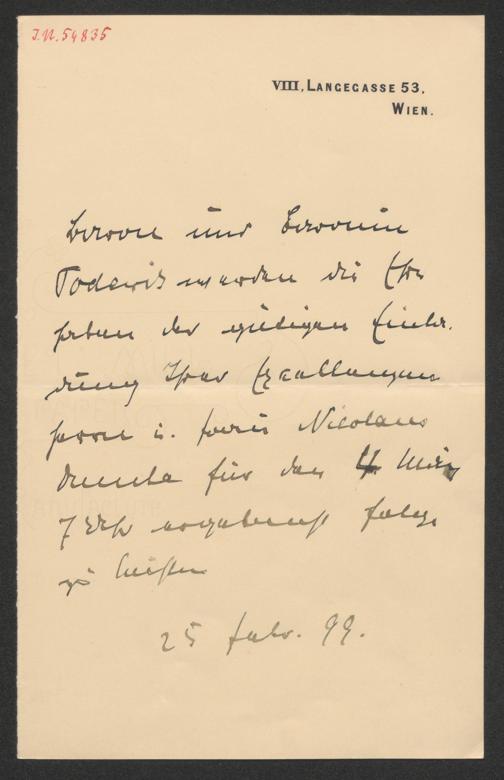 I.N. 54835
VIII, LANGEGASSE 53,
WIEN.
Baron und Baronin
werden die Ehre
haben der gütigen Einla-
dung Ihrer Excellenzen
Herrn u. Frau Nicolaus
Dumba für den 4 März
7 Uhr ergebenst Folge
zu leisten
25 Febr. 99.